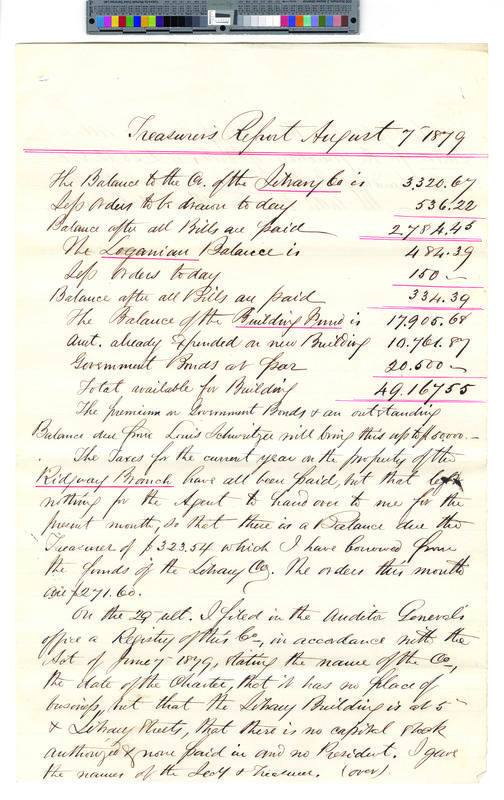 Treasurer's Report August 7 1879
The Balance to the Cr. of the Library Co is 3320.67
Less orders to be drawn to day 536.22
Balance after all Bills are paid 2784.45
The Loganian Balance is 484.39
Less orders today 150 -
Balance after all Bills are paid 334.39
The Balance of the Building Fund is 17.905.68
Amt. already Expended on new Building 10.761.87
Government Bonds at par 20.500 -
Total available for Building 49.167 55
The premium on Government Bonds & an outstanding
Balance due from Louis Schweitzer will bring this up to $50000.-
The Taxes for the current year on the property of the
Ridgway Branch have all been paid, but that left
nothing for the Agent to hand over to me for the
present month, so that there is a Balance due the
Treasurer of $323.54 which I have borrowed from
the funds of the Library Co. The orders this month
are $271.60.
On the 29 ult. I filed in the Auditor General's
office a Registry of this Co, in accordance with the
Act of June 7 1879, stating the name of the Co,
the date of the Charter, that it has no place of
business, but that the Library Building is at 5
& Library Streets, that there is no capital stock
authorized & none paid in and no President. I gave
the names of the Secy & Treasurer. (over)